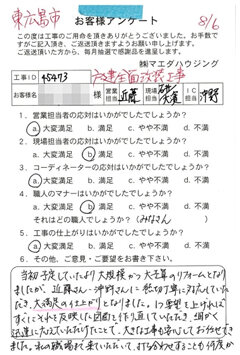 東広島市
お客様アンケート
8/6
この度は工事のご用命を頂きありがとうございました。お手数
ですがご記入頂き、ご返送頂きますようお願い申し上げます。
ご返送頂いた方から、毎月抽選で感謝品を進呈します。
㈱マエダハウジング
工事ID 45473 全面改装工事
様 営業担当 近藤 現場担当 IC担当 沖野
1. 営業担当者の対応はいかがでしたでしょうか?
a.大変満足 b.満足 c.やや不満 d.不満
2. 現場担当者の対応はいかがでしたでしょうか?
a.大変満足 b.満足 c.やや不満 d.不満
3. コーディネーターの対応はいかがでしたでしょうか?
a.大変満足 b.満足 c.やや不満 d.不満
4. 職人のマナーはいかがでしたでしょうか?
a.大変満足 b.満足 c.やや不満 d.不満
それはどの職人でしょうか?(みなさん)
5. 工事の仕上がりはいかがでしたでしょうか?
a.大変満足 b.満足 c.やや不満 d.不満
6. その他、ご意見・ご要望をお書き下さい。
当初予定していたより大規模かつ大金額のリフォームとなり
ましたが、近藤さん・沖野さんに熱切丁寧に対応していた
だき、大満足の仕上がりとなりました。1つ要望を上げれば
すぐにそれを反映した図面を作り直していただき、細かく
迅速に応えていただけたことで、大きな工事も安心してお任せできま
した。私の職場まで来ていただいて、打ち合わせすることも何度か